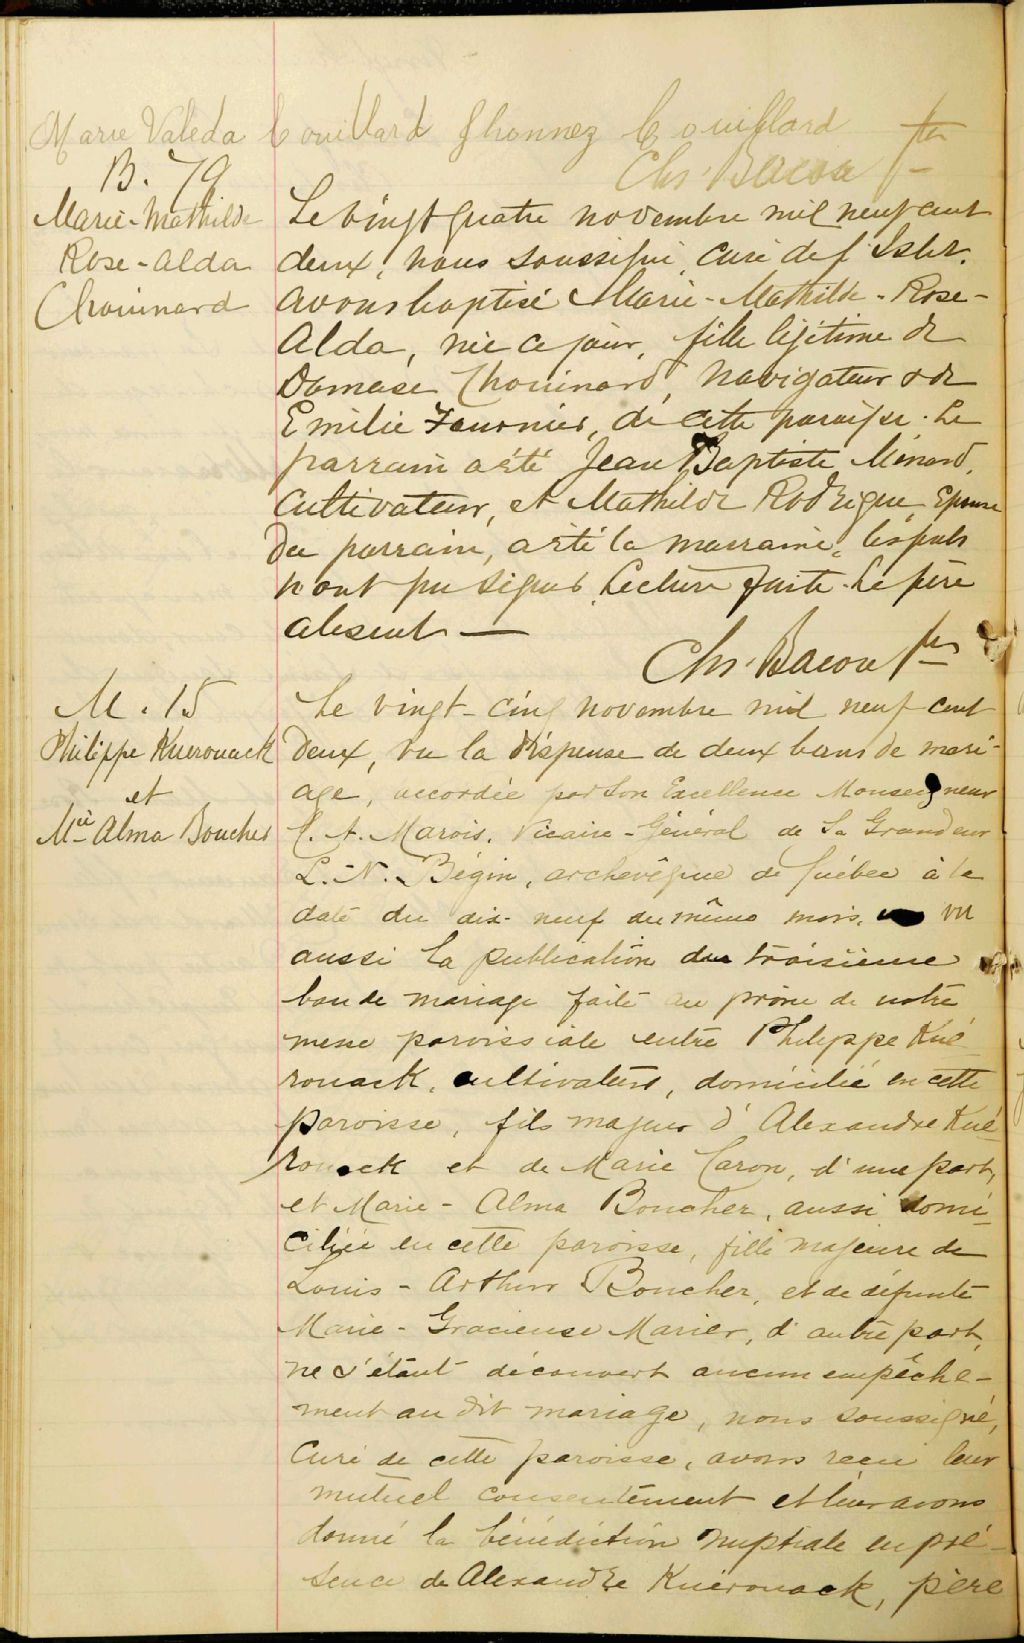 Marie Valeda Couillard Ghonnez Couillard
Chs. Bacon ptre
B. 79
Marie-Mathilde
Rose-Alda
Chouinard
Le vingt quatre novembre mil neuf cent
deux, nous soussigné, curé de l'Islet.
avons baptisé Marie-Mathilde-Rose-
Alda, née ce jour, fille légitime de
Damase Chouinard, navigateur & de
Emilie Fournier, de cette paroisse. Le
parrain a été Jean Baptiste Ménard,
cultivateur, et Mathilde Rodrigue, Epouse
du parrain, a été la marraine, lesquels
n'ont pu signer. Lecture faite. Le père
absent —
Chs. Bacon ptre
M. 15
Philippe Kuerouack
et
Mie Alma Boucher
Le vingt-cinq novembre mil neuf cent
deux, vu la dispense de deux bans de mari-
age, accordée par Son Excellence Monseigneur
C. A. Marois, Vicaire-Général de Sa Grandeur
L.-N. Bégin, archevêque de Québec à la
date du dix-neuf du même mois, vu
aussi la publication du troisième
ban de mariage faite au prône de notre
messe paroissiale entre Philippe Kué-
rouack, cultivateur, domicilié en cette
paroisse, fils majeur d'Alexandre Kué-
rouack et de Marie Caron, d'une part,
et Marie-Alma Boucher, aussi domi-
ciliée en cette paroisse, fille majeure de
Louis-Arthur Boucher, et de défunte
Marie-Gracieuse Marier, d'autre part,
ne s'étant découvert aucun empêche-
ment au dit mariage, nous soussigné,
Curé de cette paroisse, avons reçu leur
mutuel consentement et leur avons
donné la bénédiction nuptiale en pré-
sence de Alexandre Kuérouack, père